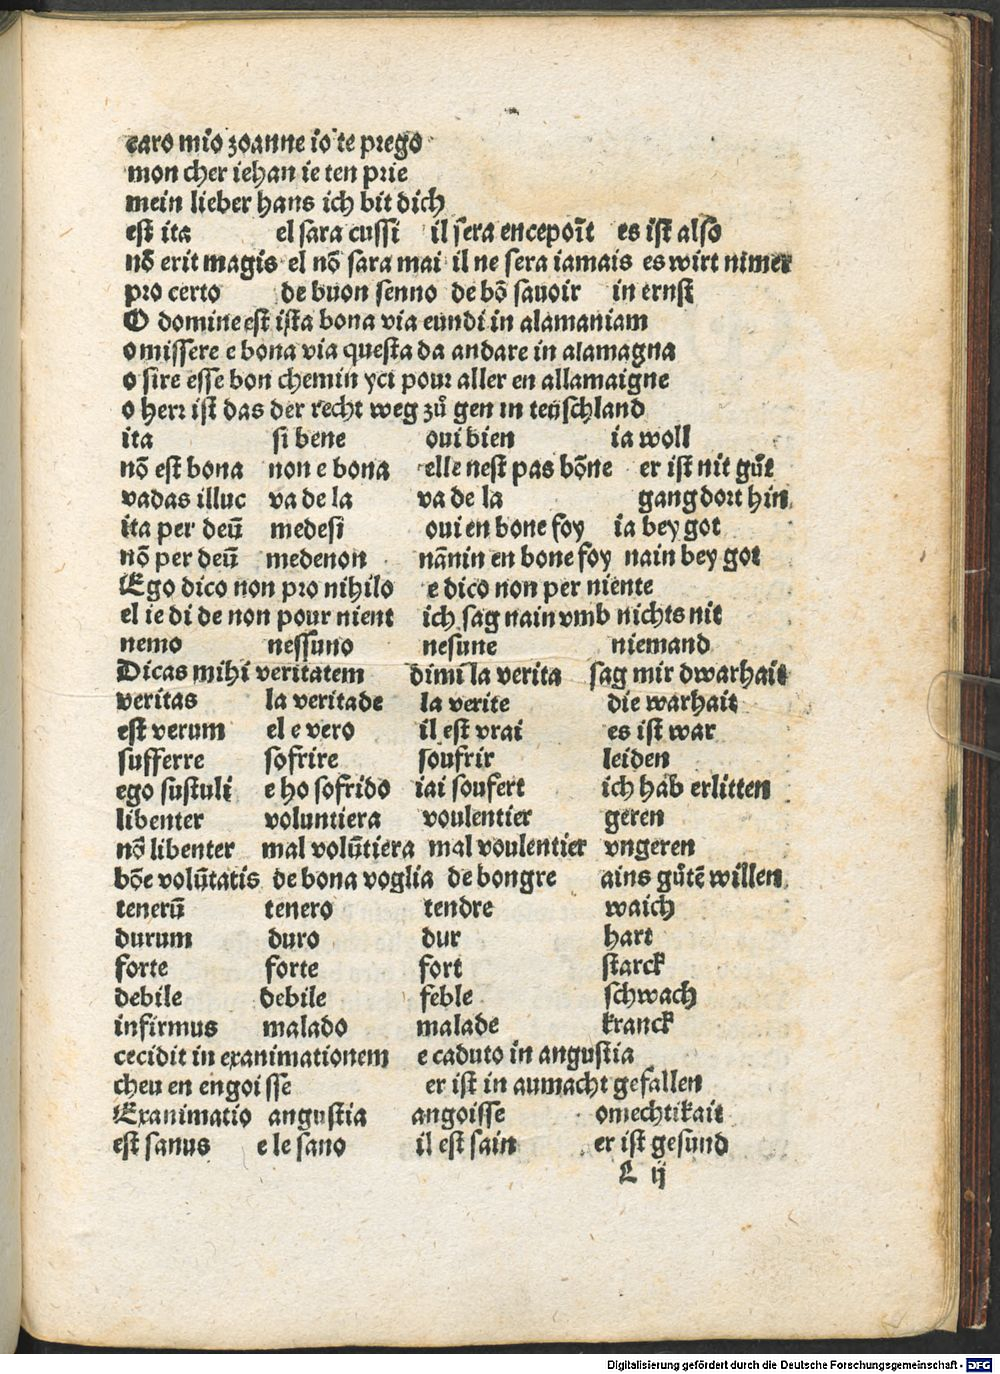 caro mio zoanne io te prego
mon cher iehan ie ten prie
mein lieber hans ich bit dich
est ita el sara cussi il sera encepoīt es ist also
nō erit magis el nō sara mai il ne sera iamais es wirt nimer
pro certo de buon senno de bō sauoir in ernst
O domine est ista bona via eundi in alamaniam
o missere e bona via questa da andare in alamagna
o sire esse bon chemin yci pour aller en allamaigne
o herr ist das der recht weg zů gen in teuschland
ita si bene oui bien ia woll
nō est bona non e bona elle nest pas bōne er ist nit gůt
vadas illuc va de la va de la gang dort hin
ita per deū medesi oui en bone foy ia bey got
nō per deū medenon nānin en bone foy nain bey got
Ego dico non pro nihilo e dico non per niente
el ie di de non pour nient ich sag nain vmb nichts nit
nemo nessuno nesune niemand
Dicas mihi veritatem dimi la verita sag mir dwarhait
veritas la veritade la verite die warhait
est verum el e vero il est vrai es ist war
sufferre sofrire soufrir leiden
ego sustuli e ho sofrido iai soufert ich hab erlitten
libenter voluntiera voulentier geren
nō libenter mal volūtiera mal voulentier vngeren
bōe volūtatis de bona voglia de bongre ains gůtē willen
tenerū tenero tendre waich
durum duro dur hart
forte forte fort starck
debile debile feble schwach
infirmus malado malade kranck
cecidit in exanimationem e caduto in angustia
cheu en engoisse er ist in aumacht gefallen
Exanimatio angustia angoisse omechtikait
est sanus e le sano il est sain er ist gesund
L ij
Digitalisierung gefördert durch die Deutsche Forschungsgemeinschaft - DFG